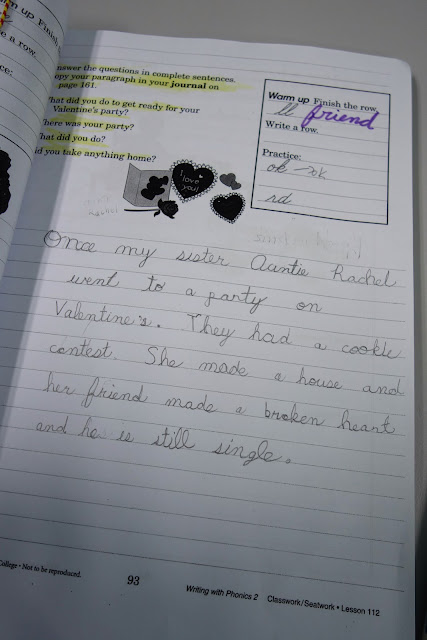 m up Finish
e a row.
ce:
nswer the questions in complete sentences.
opy your paragraph in your journal on
page 161.
hat did you do to get ready for your
Valentine's party?
here was your party?
hat did you do?
id you take anything home?
I love you!
Warm up Finish the row.
ll friend
Write a row.
Practice:
ok ok
rd
Once my sister Auntie Rachel
went to a party on
Valentine's. They had a cookie
contest. She made a house and
her friend made a broken heart
and he is still single.
College • Not to be reproduced.
93
Writing with Phonics 2 Classwork/Seatwork • Lesson 112